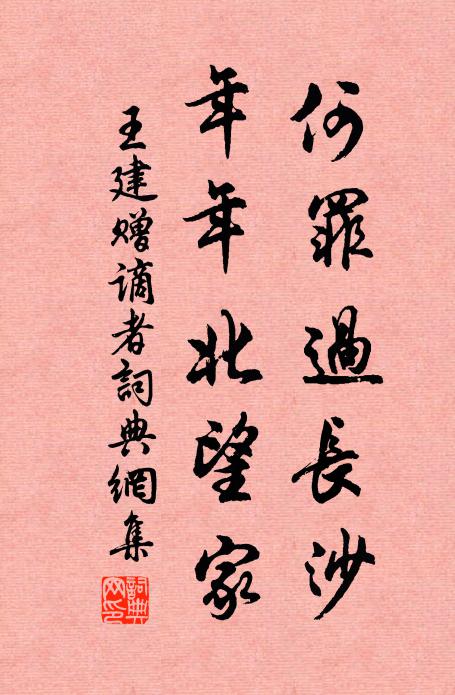 何罪過長沙
年年北望家
王建赠謫者詞典網集
詞典網印